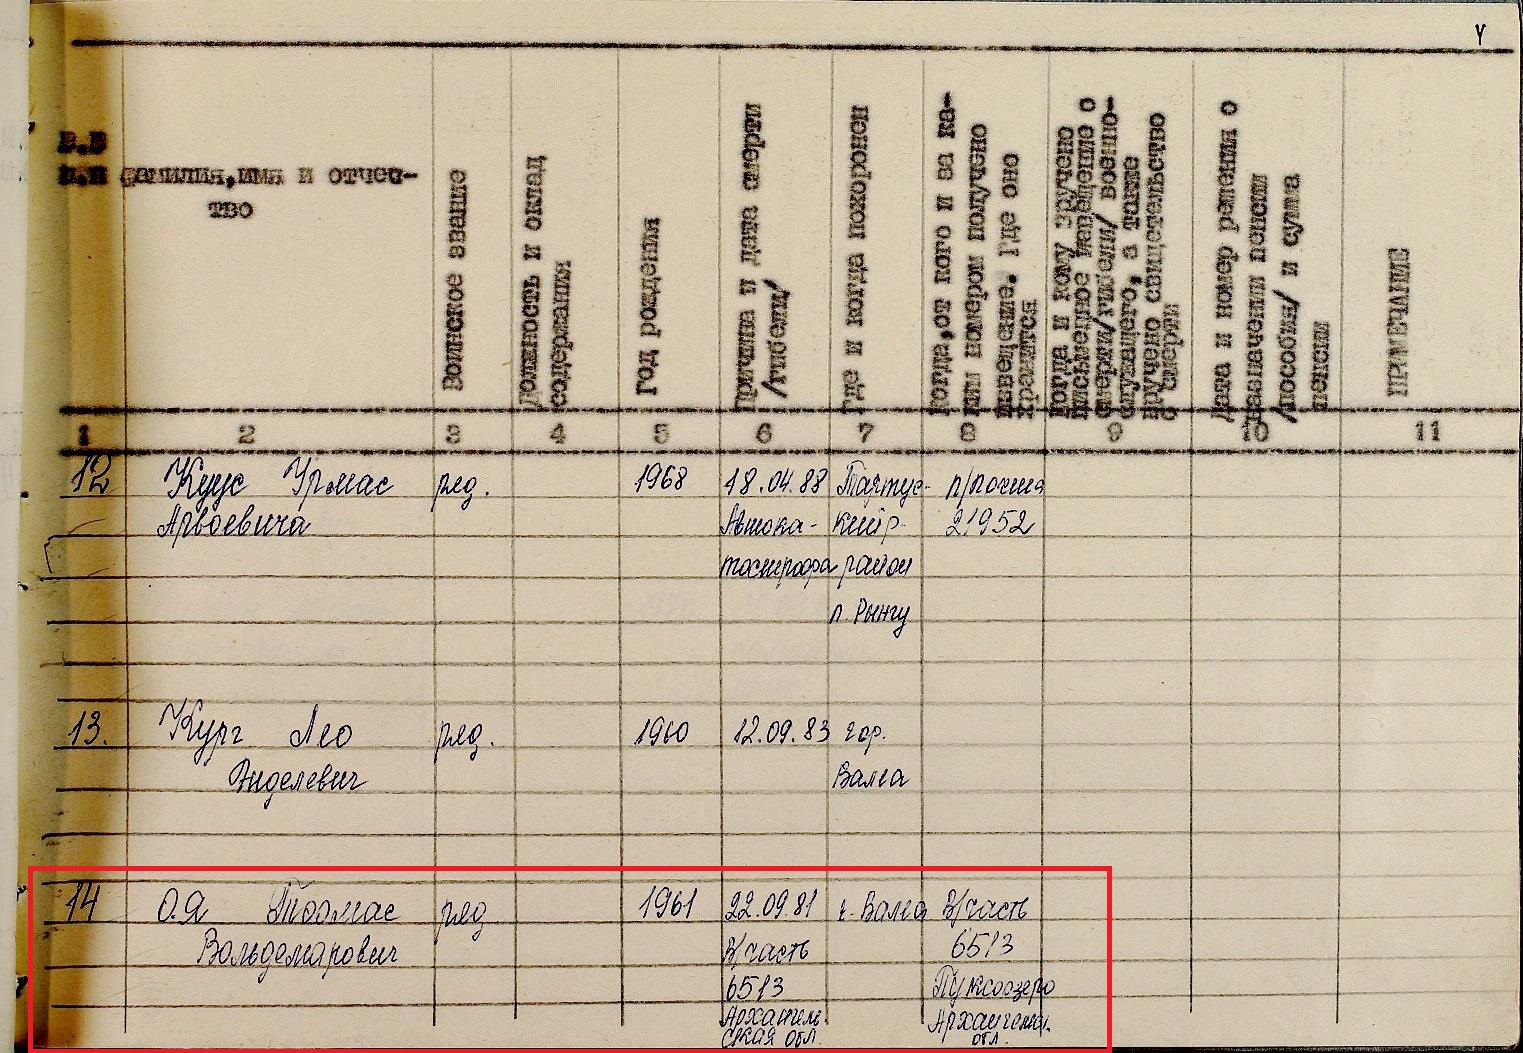 4
№.№
п.п
ФАМИЛИЯ, ИМЯ И ОТЧЕС-
ТВО
Воинское звание
Должность и оклад
содержания
Год рождения
Причина и дата смерти
/гибели/
Где и когда похоронен
Когда, от кого и за ка-
ким номером получено
инведение. Где оно
хранится
Когда и кому вручено
письменное изведение о
смерти/гибели/ военно-
служащего, а также
вручено свидетельство
о смерти
Дата и номер решения о
назначении пенсии
/пособия/ и сумма
пенсии
ПРИМЕЧАНИЕ
1 2 3 4 5 6 7 8 9 10 11
12 Куус Урмас ряд. 1968 18.04.88 Тартус- п/почта
Арвоевича Автока- кий р- 21952
тастрофа район
п. Рынгу
13. Кург Лео ряд. 1960 12.09.83 гор.
Энделевич Валга
14 О.Я Тоомас ряд 1961 22.09.81 г. Валга В/часть
Вольдемарович В/часть 6513
6513 Пуксоозеро
Архангель- Архангельск.
ская обл. обл.